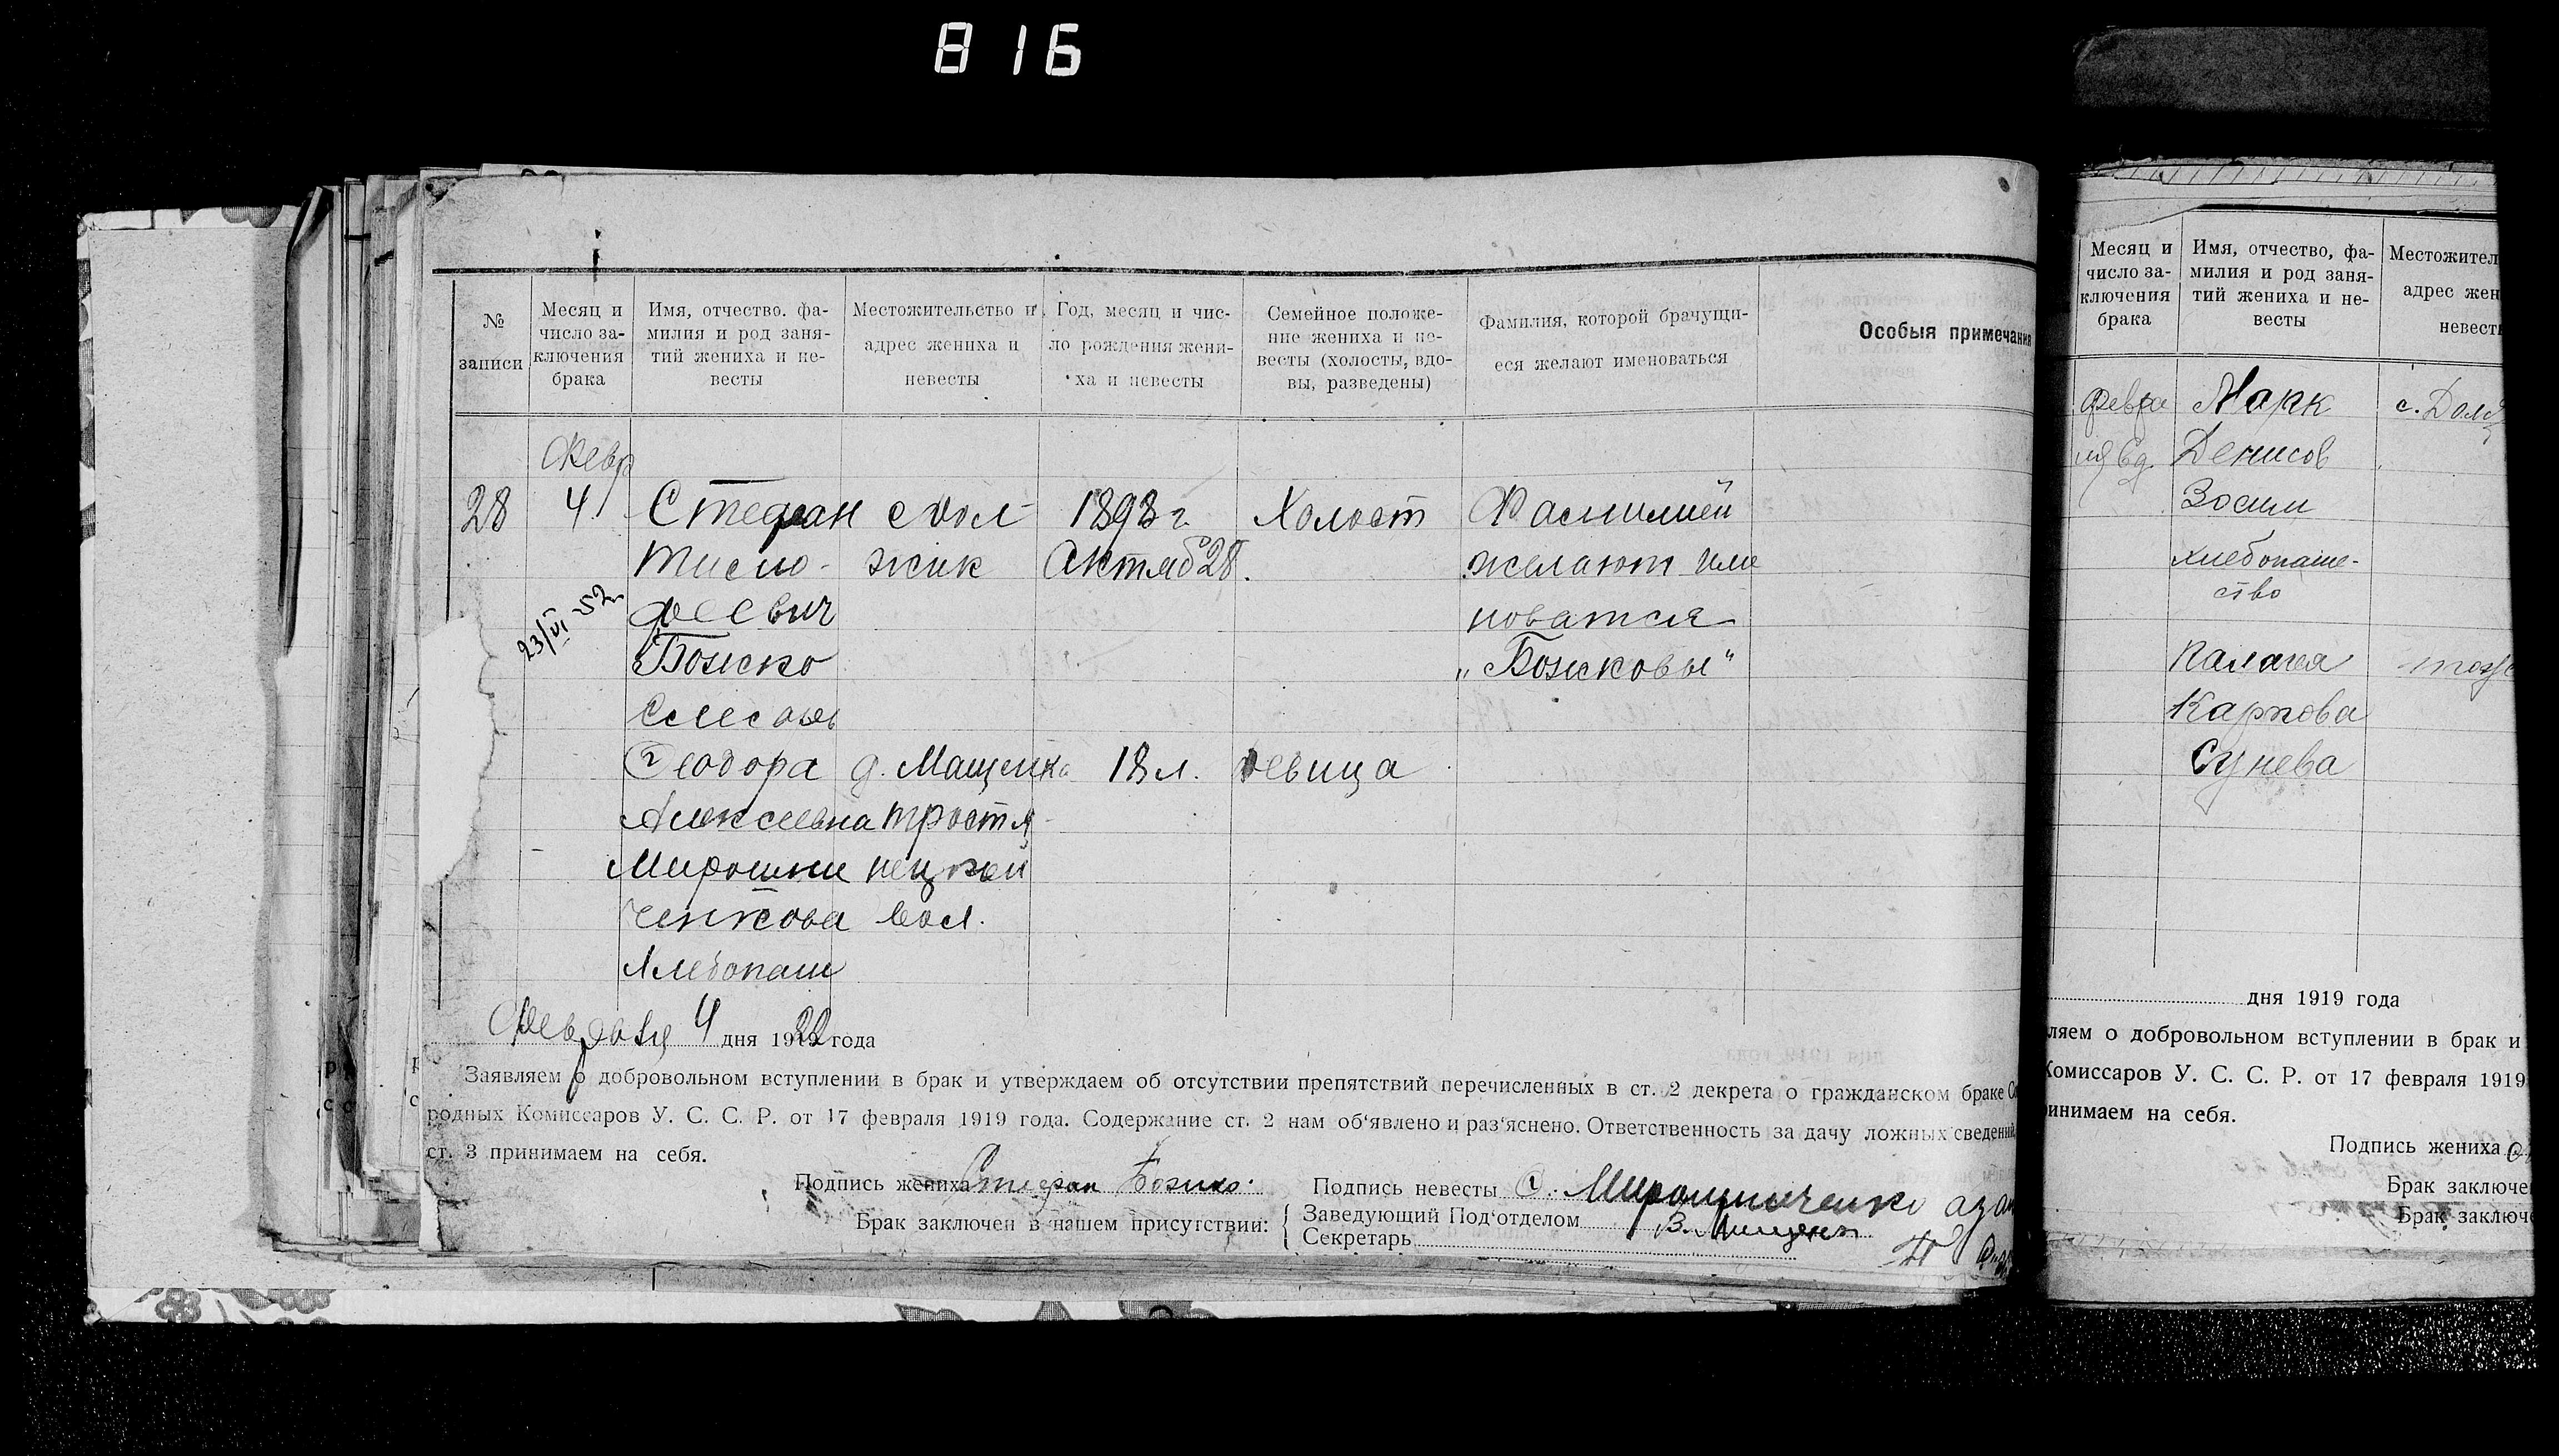 816
№ записи
Месяц и число заключения брака
Имя, отчество. фамилия и род занятий жениха и невесты
Местожительство и адрес жениха и невесты
Год, месяц и число рождения жениха и невесты
Семейное положение жениха и невесты (холосты, вдовы, разведены)
Фамилия, которой брачущиеся желают именоваться
Особыя примечания
Февр
28 4 Стефан с Должик 1893 г. Холост Фамилией
Тимо- Октяб 28. желают име
феевич новатся
23/VI 52
Божко „Божковы"
Слесарь
Феодора д. Мащенка 18 л. девица
Алексеевна Тростя
Мирошни нецкой
ченкова вол.
Хлебопаш
Февраля 4 дня 1922 года
Заявляем о добровольном вступлении в брак и утверждаем об отсутствии препятствий перечисленных в ст. 2 декрета о гражданском браке Со
родных Комиссаров У. С. С. Р. от 17 февраля 1919 года. Содержание ст. 2 нам об‘явлено и раз‘яснено. Ответственность за дачу ложных сведений
ст. 3 принимаем на себя.
Подпись жениха Стефан Божко. Подпись невесты Ф. Мирошниченко
Брак заключен в нашем присутствии: Заведующий Под‘отделом
Секретарь
Месяц и число заключения брака
Имя, отчество, фамилия и род занятий жениха и невесты
Местожител
адрес жен
невест
февра Марк с. Долж
ля 6 д. Денисов
Зосим
хлебопаше-
ство
Палагея тоже
Карпова
Сунева
дня 1919 года
ляем о добровольном вступлении в брак и
Комиссаров У. С. С. Р. от 17 февраля 1919
ринимаем на себя.
Подпись жениха
Брак заключе
Брак заключ